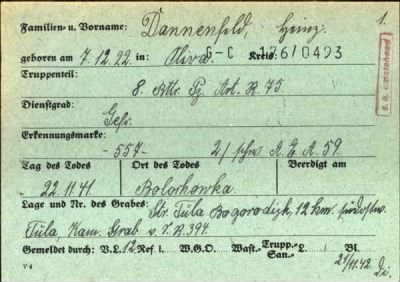 1.
Familien- u. Vorname: Dannenfeld, Heinz
geboren am 7.12.22 in: Oliva G-C 176/0493 Kreis:
Truppenteil:
8. Attr. Pz. Art. R. 75.
Dienstgrad:
Gefr.
Erkennungsmarke:
- 557 - 2/ schw A. E. A. 59
Tag des Todes Ort des Todes Beerdigt am
22.11.41 Bolochowka
Lage und Nr. des Grabes: Str. Tula Bogorodizk, 12 km. südostw.
Tula, Kam. Grab v. I.R. 394.
Gemeldet durch: V.L. 12 Ref 1. W.G.O. Wast.- Trupp.- San.- L. Bl.
V 4 21/11.42 Di.